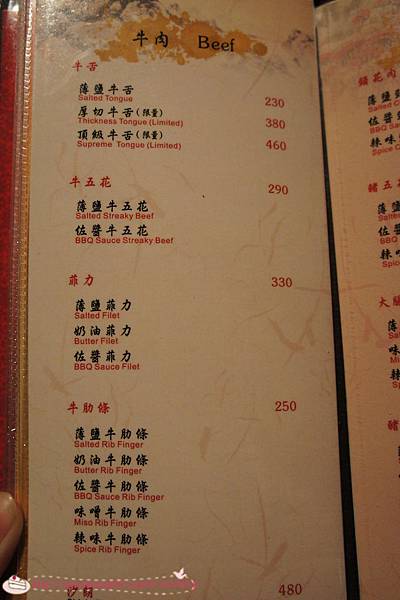 牛肉 Beef
牛舌
薄鹽牛舌
Salted Tongue 230
厚切牛舌(限量)
Thickness Tongue (Limited) 380
頂級牛舌(限量)
Supreme Tongue (Limited) 460
牛五花 290
薄鹽牛五花
Salted Streaky Beef
佐醬牛五花
BBQ Sauce Streaky Beef
菲力 330
薄鹽菲力
Salted Filet
奶油菲力
Butter Filet
佐醬菲力
BBQ Sauce Filet
牛肋條 250
薄鹽牛肋條
Salted Rib Finger
奶油牛肋條
Butter Rib Finger
佐醬牛肋條
BBQ Sauce Rib Finger
味噌牛肋條
Miso Rib Finger
辣味牛肋條
Spice Rib Finger
沙朗 480
薄鹽
Salted
佐醬
BBQ Sauce
辣味
Spice
豬五
薄鹽
Salted
佐醬
BBQ
辣味
Spice
大腿
薄
Salted
味
Miso
辣
Spice
豬